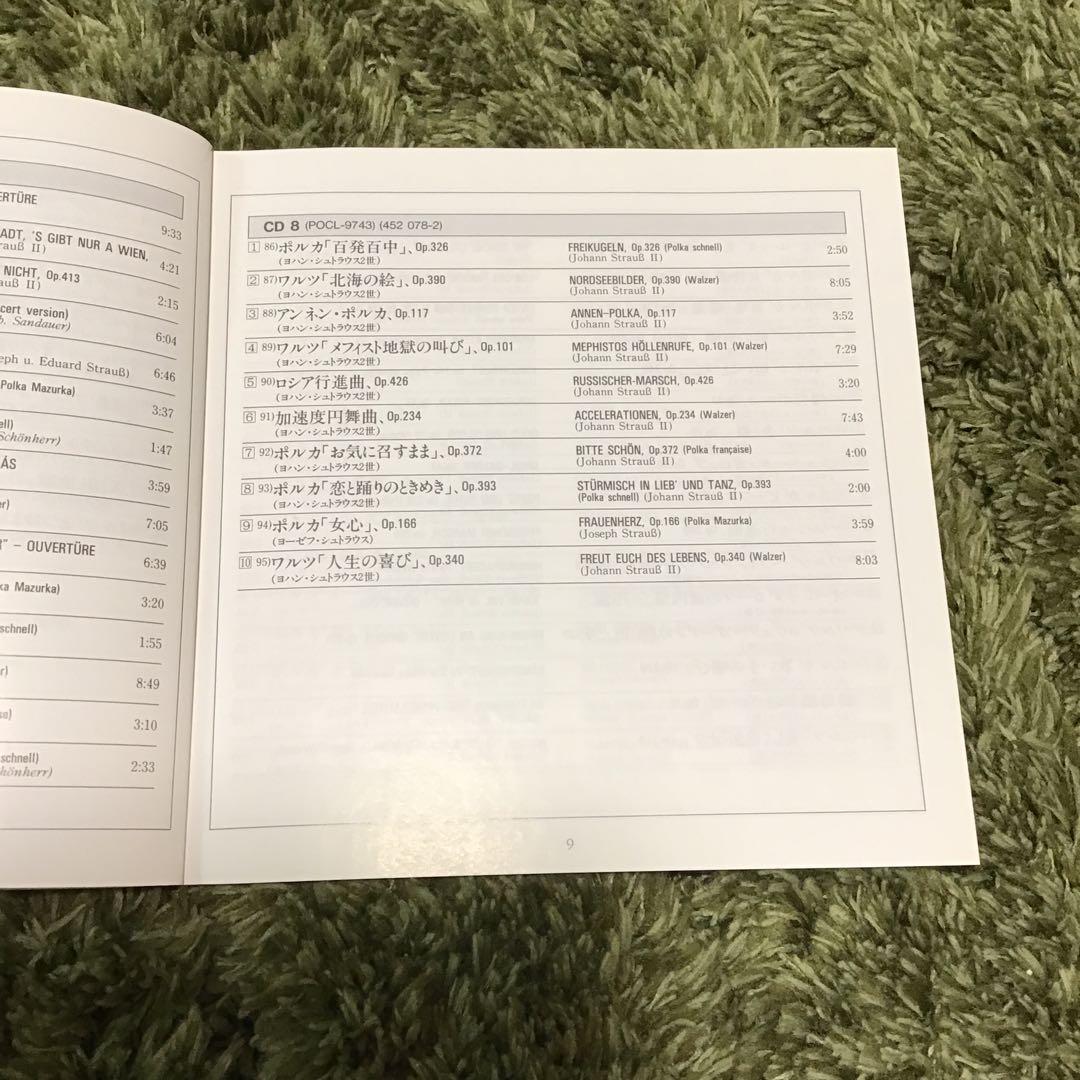 ERTÜRE
9:33
ADT, 'S GIBT NUR A WIEN,
rauß II)
4:21
NICHT, Op.413
auß II)
2:15
cert version)
b. Sandauer)
6:04
eph u. Eduard Strauß)
6:46
Polka Mazurka)
3:37
ell)
Schönherr)
1:47
ÁS
3:59
er)
7:05
R" – OUVERTÜRE
6:39
ka Mazurka)
3:20
schnell)
1:55
r)
8:49
se)
3:10
schnell)
hönherr)
2:33
CD 8 (POCL-9743) (452 078-2)
1 86)ポルカ「百発百中」、Op.326 FREIKUGELN, Op.326 (Polka schnell) 2:50
(ヨハン・シュトラウス2世) (Johann Strauß II)
2 87)ワルツ「北海の絵」、Op.390 NORDSEEBILDER, Op.390 (Walzer) 8:05
(ヨハン・シュトラウス2世) (Johann Strauß II)
3 88)アンネン・ポルカ、Op.117 ANNEN–POLKA, Op.117 3:52
(ヨハン・シュトラウス2世) (Johann Strauß II)
4 89)ワルツ「メフィスト地獄の叫び」、Op.101 MEPHISTOS HÖLLENRUFE, Op.101 (Walzer) 7:29
(ヨハン・シュトラウス2世) (Johann Strauß II)
5 90)ロシア行進曲、Op.426 RUSSISCHER-MARSCH, Op.426 3:20
(ヨハン・シュトラウス2世) (Johann Strauß II)
6 91)加速度円舞曲、Op.234 ACCELERATIONEN, Op.234 (Walzer) 7:43
(ヨハン・シュトラウス2世) (Johann Strauß II)
7 92)ポルカ「お気に召すまま」、Op.372 BITTE SCHÖN, Op.372 (Polka française) 4:00
(ヨハン・シュトラウス2世) (Johann Strauß II)
8 93)ポルカ「恋と踊りのときめき」、Op.393 STÜRMISCH IN LIEB' UND TANZ, Op.393 2:00
(ヨハン・シュトラウス2世) (Polka schnell) (Johann Strauß II)
9 94)ポルカ「女心」、Op.166 FRAUENHERZ, Op.166 (Polka Mazurka) 3:59
(ヨーゼフ・シュトラウス) (Joseph Strauß)
10 95)ワルツ「人生の喜び」、Op.340 FREUT EUCH DES LEBENS, Op.340 (Walzer) 8:03
(ヨハン・シュトラウス2世) (Johann Strauß II)
9